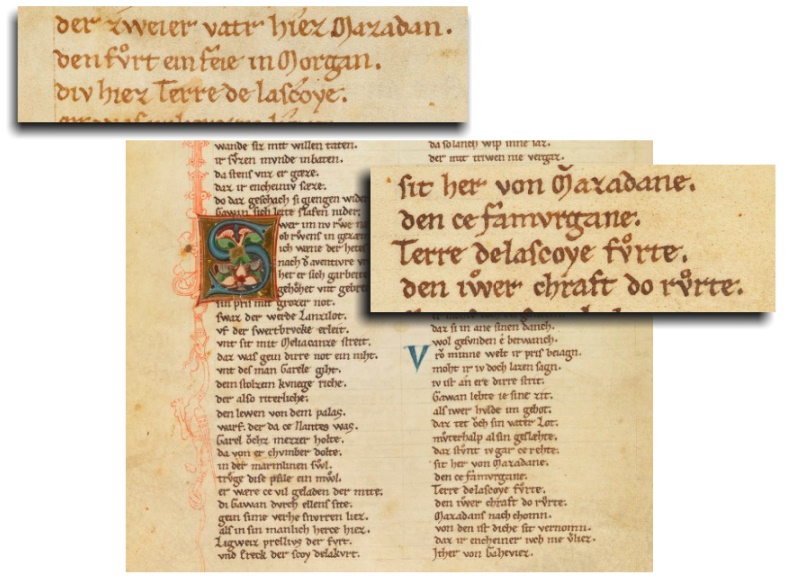 der zweier vatr hiez Mazadan.
den fuͦrt ein feie in Morgan.
div hiez Terre de lascoye.
sit her von Mazadane.
den ce famvrgane.
Terre delascoye fuͦrte.
den iwͦer chraft do ruͦrte.
wande siz mit willen taten.
ir svzen mvnde in baten.
daz ir encheiniv
do daz geschach si giengen
Gawan sich leite slafen nider
S
wer im nv rwͦt
ob rwens in
ich wene der
nach d aventivre
her er sich garbeite
gehohet vnt
sin pris mit grozer not.
swaz der werde Lanzilot.
vf der swertbrvcke erleit.
vnt sit mit Meliacanze streit.
daz was gein dirre not ein niht.
vnt des man Garele giht.
dem stolzem kvnege riche.
der also riterliche.
den lewen von dem palas.
warf. der da ce Nantes was.
Garel oͮch mezzer holte.
da von er chvmber dolte.
in der marmlinen svͦl.
trvͦge dise pfile ein mvͦl.
er were ce vil geladen der mite.
di Gawan dvrch ellens site.
gein sime verhe snvrren liez.
als in sin manlich herce hiez.
Ligweiz prellivs der fvrt.
vnd Ereck der scoy delakvrt.
da solanch wip inne iaz.
der mit triwen nie vergaz.
daz si in ane sinen danch.
wol gefvnden ce berwanch.
V
roͮ minne welt ir pris beiagn.
moht ir iv doch lazen sagn.
iv ist an ere dirre strit.
Gawan lebte ie sine zit.
als iwer hvlde im gebot.
daz tet oͮch sin vater Lot.
mvͦterhalp al sin geslæhte.
daz stvͦnt iv gar ce rehte.
sit her von Mazadane.
den ce famvrgane.
Terre delascoye fvͦrte.
den iwͦer chraft do rvͦrte.
Mazadans nach chomn.
von den ist diche sit vernomn.
daz ir encheiner iwch nie vͤrliez.
Ither von Gaheviez.